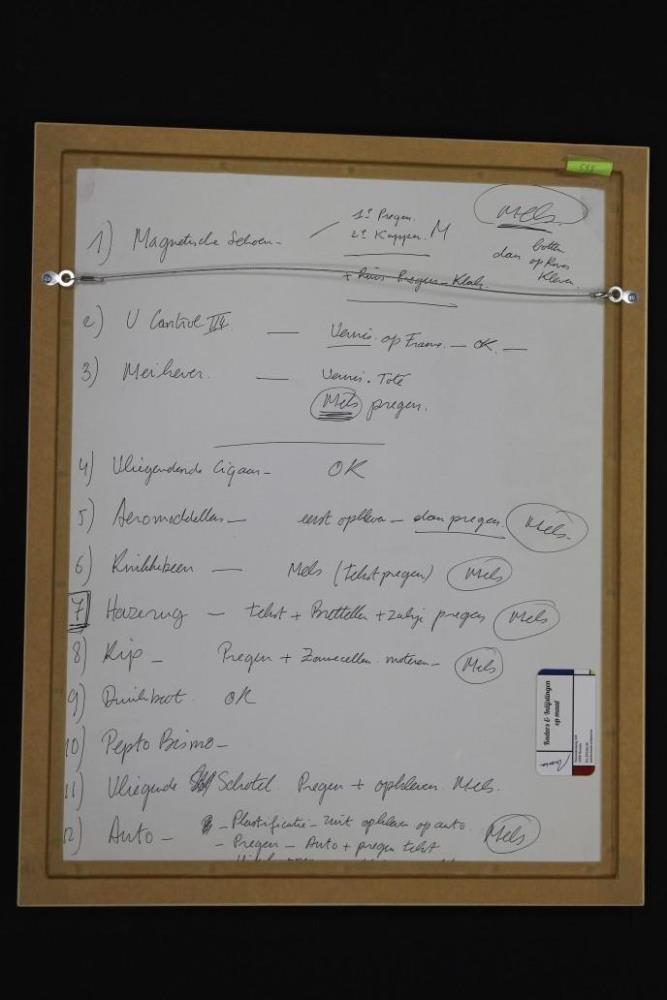 Mels.
1) Magnetische Schoen -
1° Pregen.
2° Kappen. M
dan
op
Kleven.
2) U Control III — Vernis. op Frame. — OK. —
3) Meikever. — Vernis. Tote
Mels pregen.
4) Vliegendende Cigaar - OK
5) Aeromodellen — eerst opkleven - dan pregen. Mels.
6) — Mels (tekst pregen) Mels
7) Hazerug — tekst + Bretellen + pregen Mels
8) Kip - Pregen + Zonnecellen. motoren - Mels
9) Duikboot. OK
10) Pepto Bismo -
11) Vliegende Schotel. Pregen + opkleven. Mels.
12) Auto - - Plastificatie - opkleven op auto. Mels
- Pregen - Auto + pregen tekst
Kaders & Inlijstingen
op maat